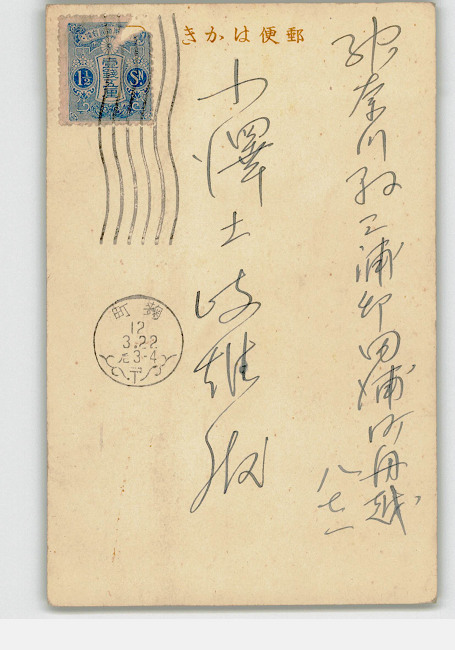 郵便はかき
神奈川縣三浦郡田浦町舟越
八七一
小澤土岐雄殿
壹錢五厘
1½ SN
麹町
12
3.22
后3-4